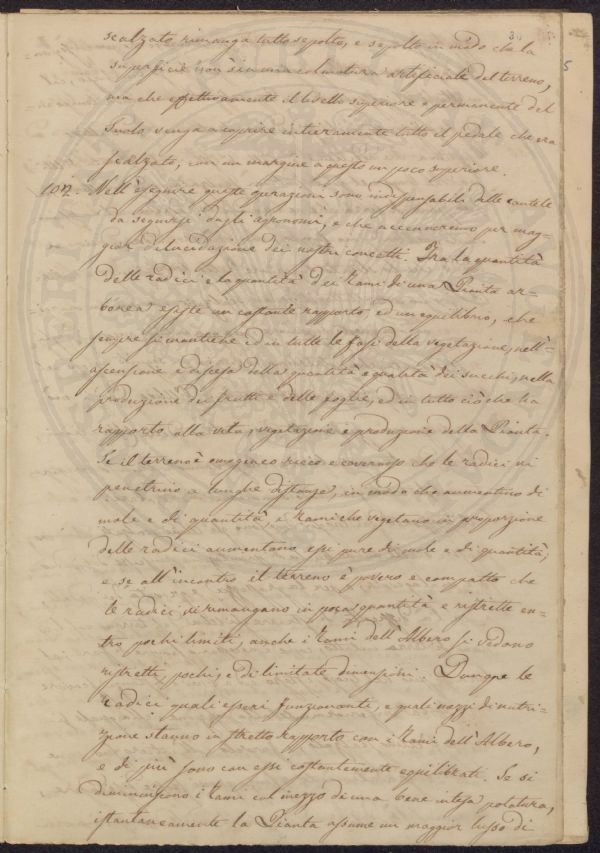 scalzato rimanga tutto sepolto, e sepolto in modo che la
superficie non sia una colmatura artificiale del terreno,
ma che effettivamente il livello superiore e permanente del
Suolo venga a coprire intieramente tutto il pedale che era
scalzato, con un margine a questo un poco superiore.
Nell'eseguire queste operazioni sono indispensabili delle cautele
da seguirsi dagli agronomi, e che accenneremo per mag-
gior delucidazione dei nostri concetti. Fra la quantità
delle radici e la quantità dei Rami di una Pianta ar-
borea esiste un costante rapporto, ed un equilibrio, che
sempre si mantiene ed in tutte le fasi della vegetazione, nell'
ascensione e discesa della quantità e qualità dei succhi, nella
produzione dei frutti e delle foglie, ed in tutto ciò che ha
rapporto alla vita, vegetazione e produzione della Pianta.
Se il terreno è omogeneo ricco e che le radici vi
penetrino a lunghe distanze, in modo che aumentino di
mole e di quantità, i Rami che vegetano in proporzione
delle radici aumentano essi pure di mole e di quantità;
e se all'incontro il terreno è povero e compatto che
le radici si rimangano in poca quantità e ristrette en-
tro pochi limiti, anche i Rami dell'Albero si vedono
ristretti, pochi, e di limitate dimensioni. Dunque le
radici quali esseri funzionanti, e quali mezzi di nutri-
zione stanno in stretto rapporto con i Rami dell'Albero,
e di più sono con essi costantemente equilibrati. Se si
diminuiscono i Rami col mezzo di una bene intesa potatura,
istantaneamente la Pianta assume un maggior lusso di